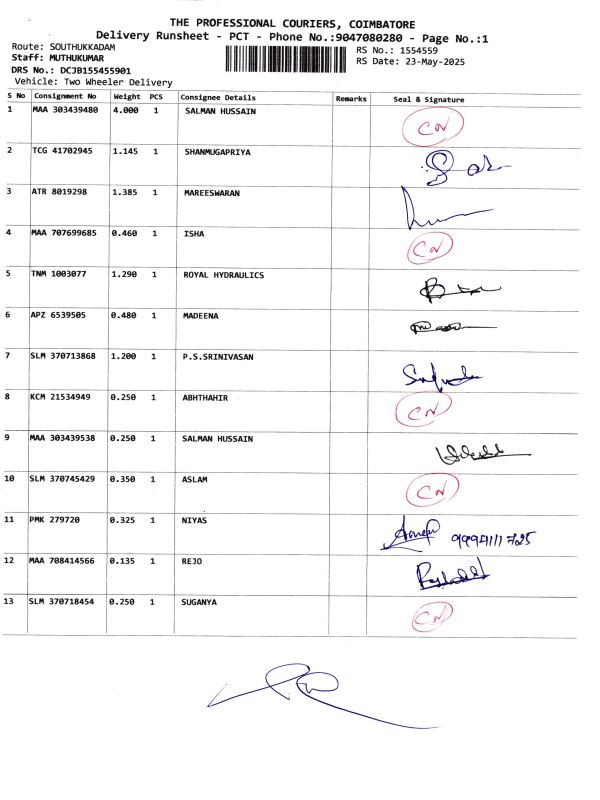 THE PROFESSIONAL COURIERS, COIMBATORE
Delivery Runsheet - PCT - Phone No.:9047080280 - Page No.:1
Route: SOUTHUKKADAM RS No.: 1554559
Staff: MUTHUKUMAR RS Date: 23-May-2025
DRS No.: DCJB155455901
Vehicle: Two Wheeler Delivery
S No Consignment No Weight PCS Consignee Details Remarks Seal & Signature
1 MAA 303439480 4.000 1 SALMAN HUSSAIN CN
2 TCG 41702945 1.145 1 SHANMUGAPRIYA
3 ATR 8019298 1.385 1 MAREESWARAN
4 MAA 707699685 0.460 1 ISHA CN
5 TNM 1003077 1.290 1 ROYAL HYDRAULICS
6 APZ 6539505 0.480 1 MADEENA
7 SLM 370713868 1.200 1 P.S.SRINIVASAN
8 KCM 21534949 0.250 1 ABHTHAHIR CN
9 MAA 303439538 0.250 1 SALMAN HUSSAIN
10 SLM 370745429 0.350 1 ASLAM CN
11 PMK 279720 0.325 1 NIYAS
12 MAA 708414566 0.135 1 REJO
13 SLM 370718454 0.250 1 SUGANYA CN